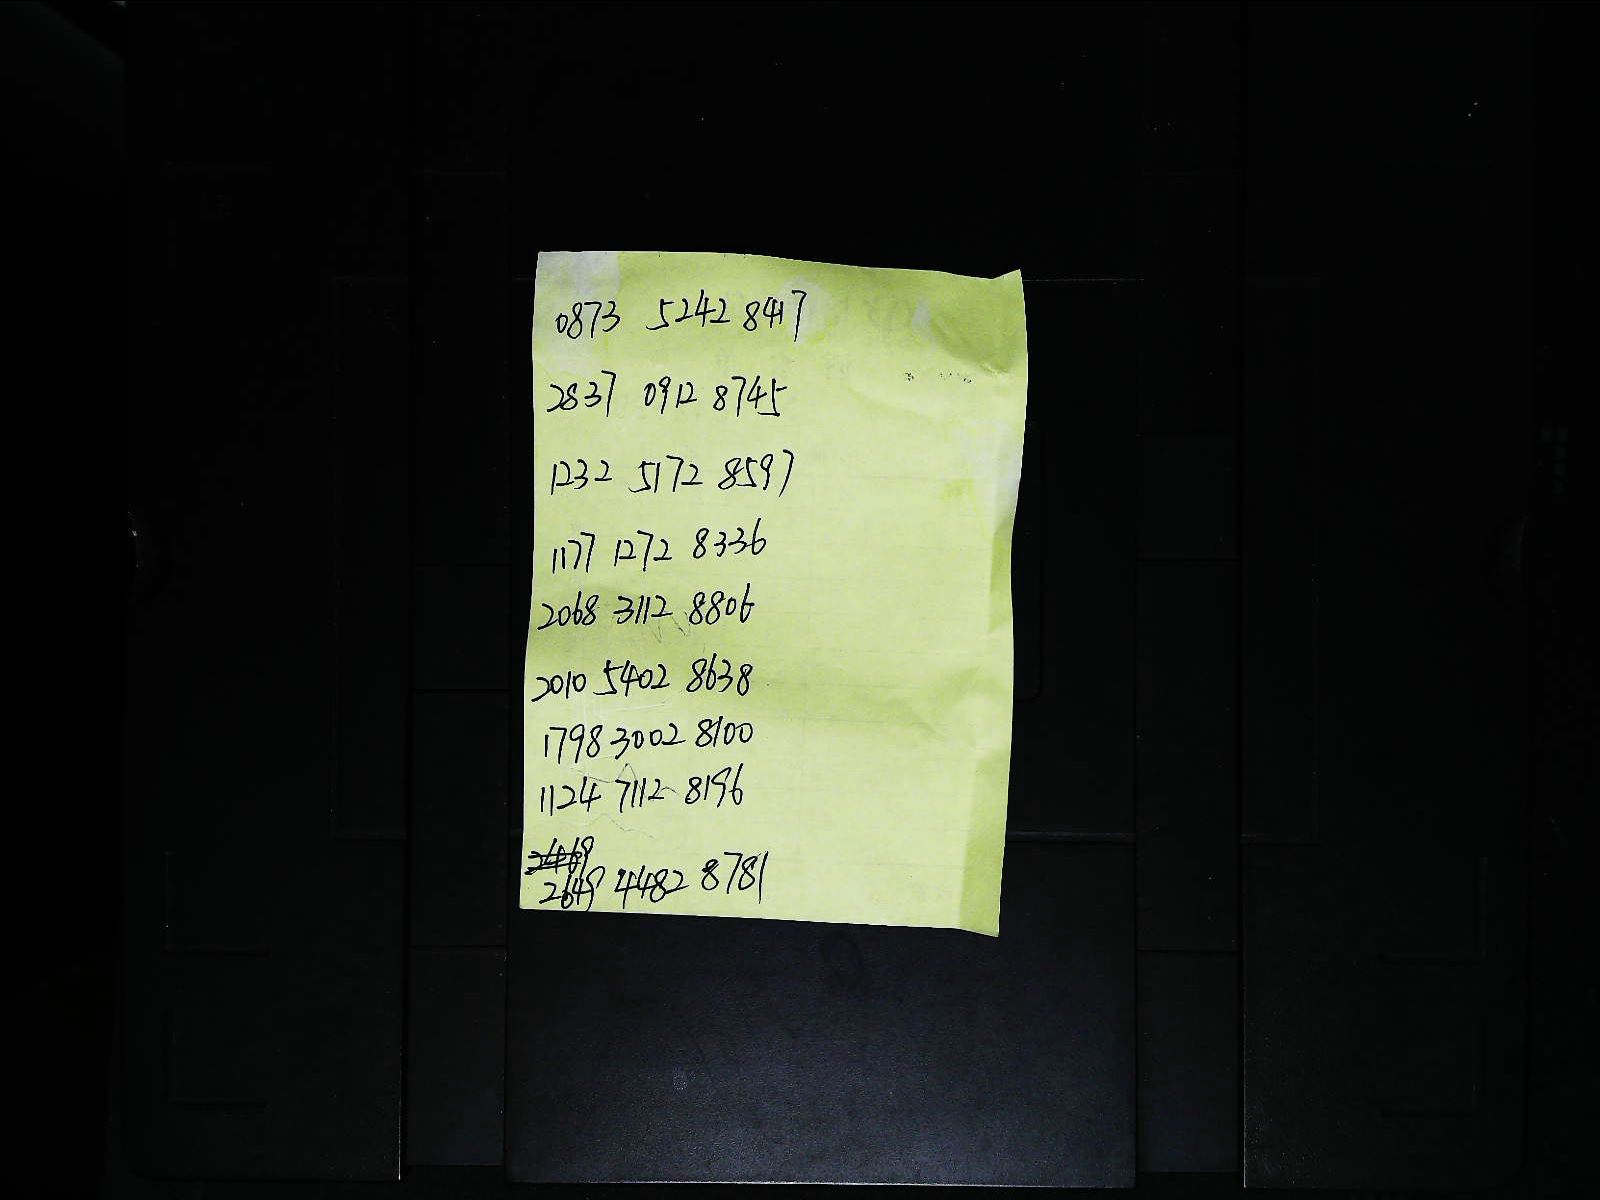 0873 5242 8417
2837 0912 8745
1232 5172 8597
1177 1272 8336
2068 3112 8806
2010 5402 8638
1798 3002 8100
1124 7112 8196
2649 4482 8781